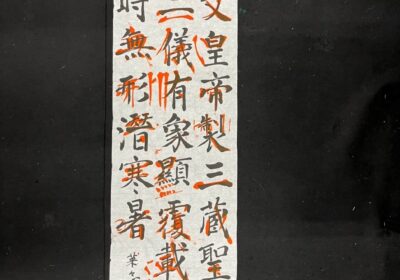 文皇帝製三蔵聖
二儀有象顯覆載
時無形潛寒暑